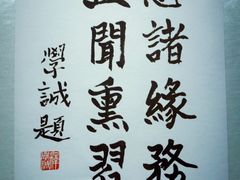 諸緣務
聞熏習
學誠題